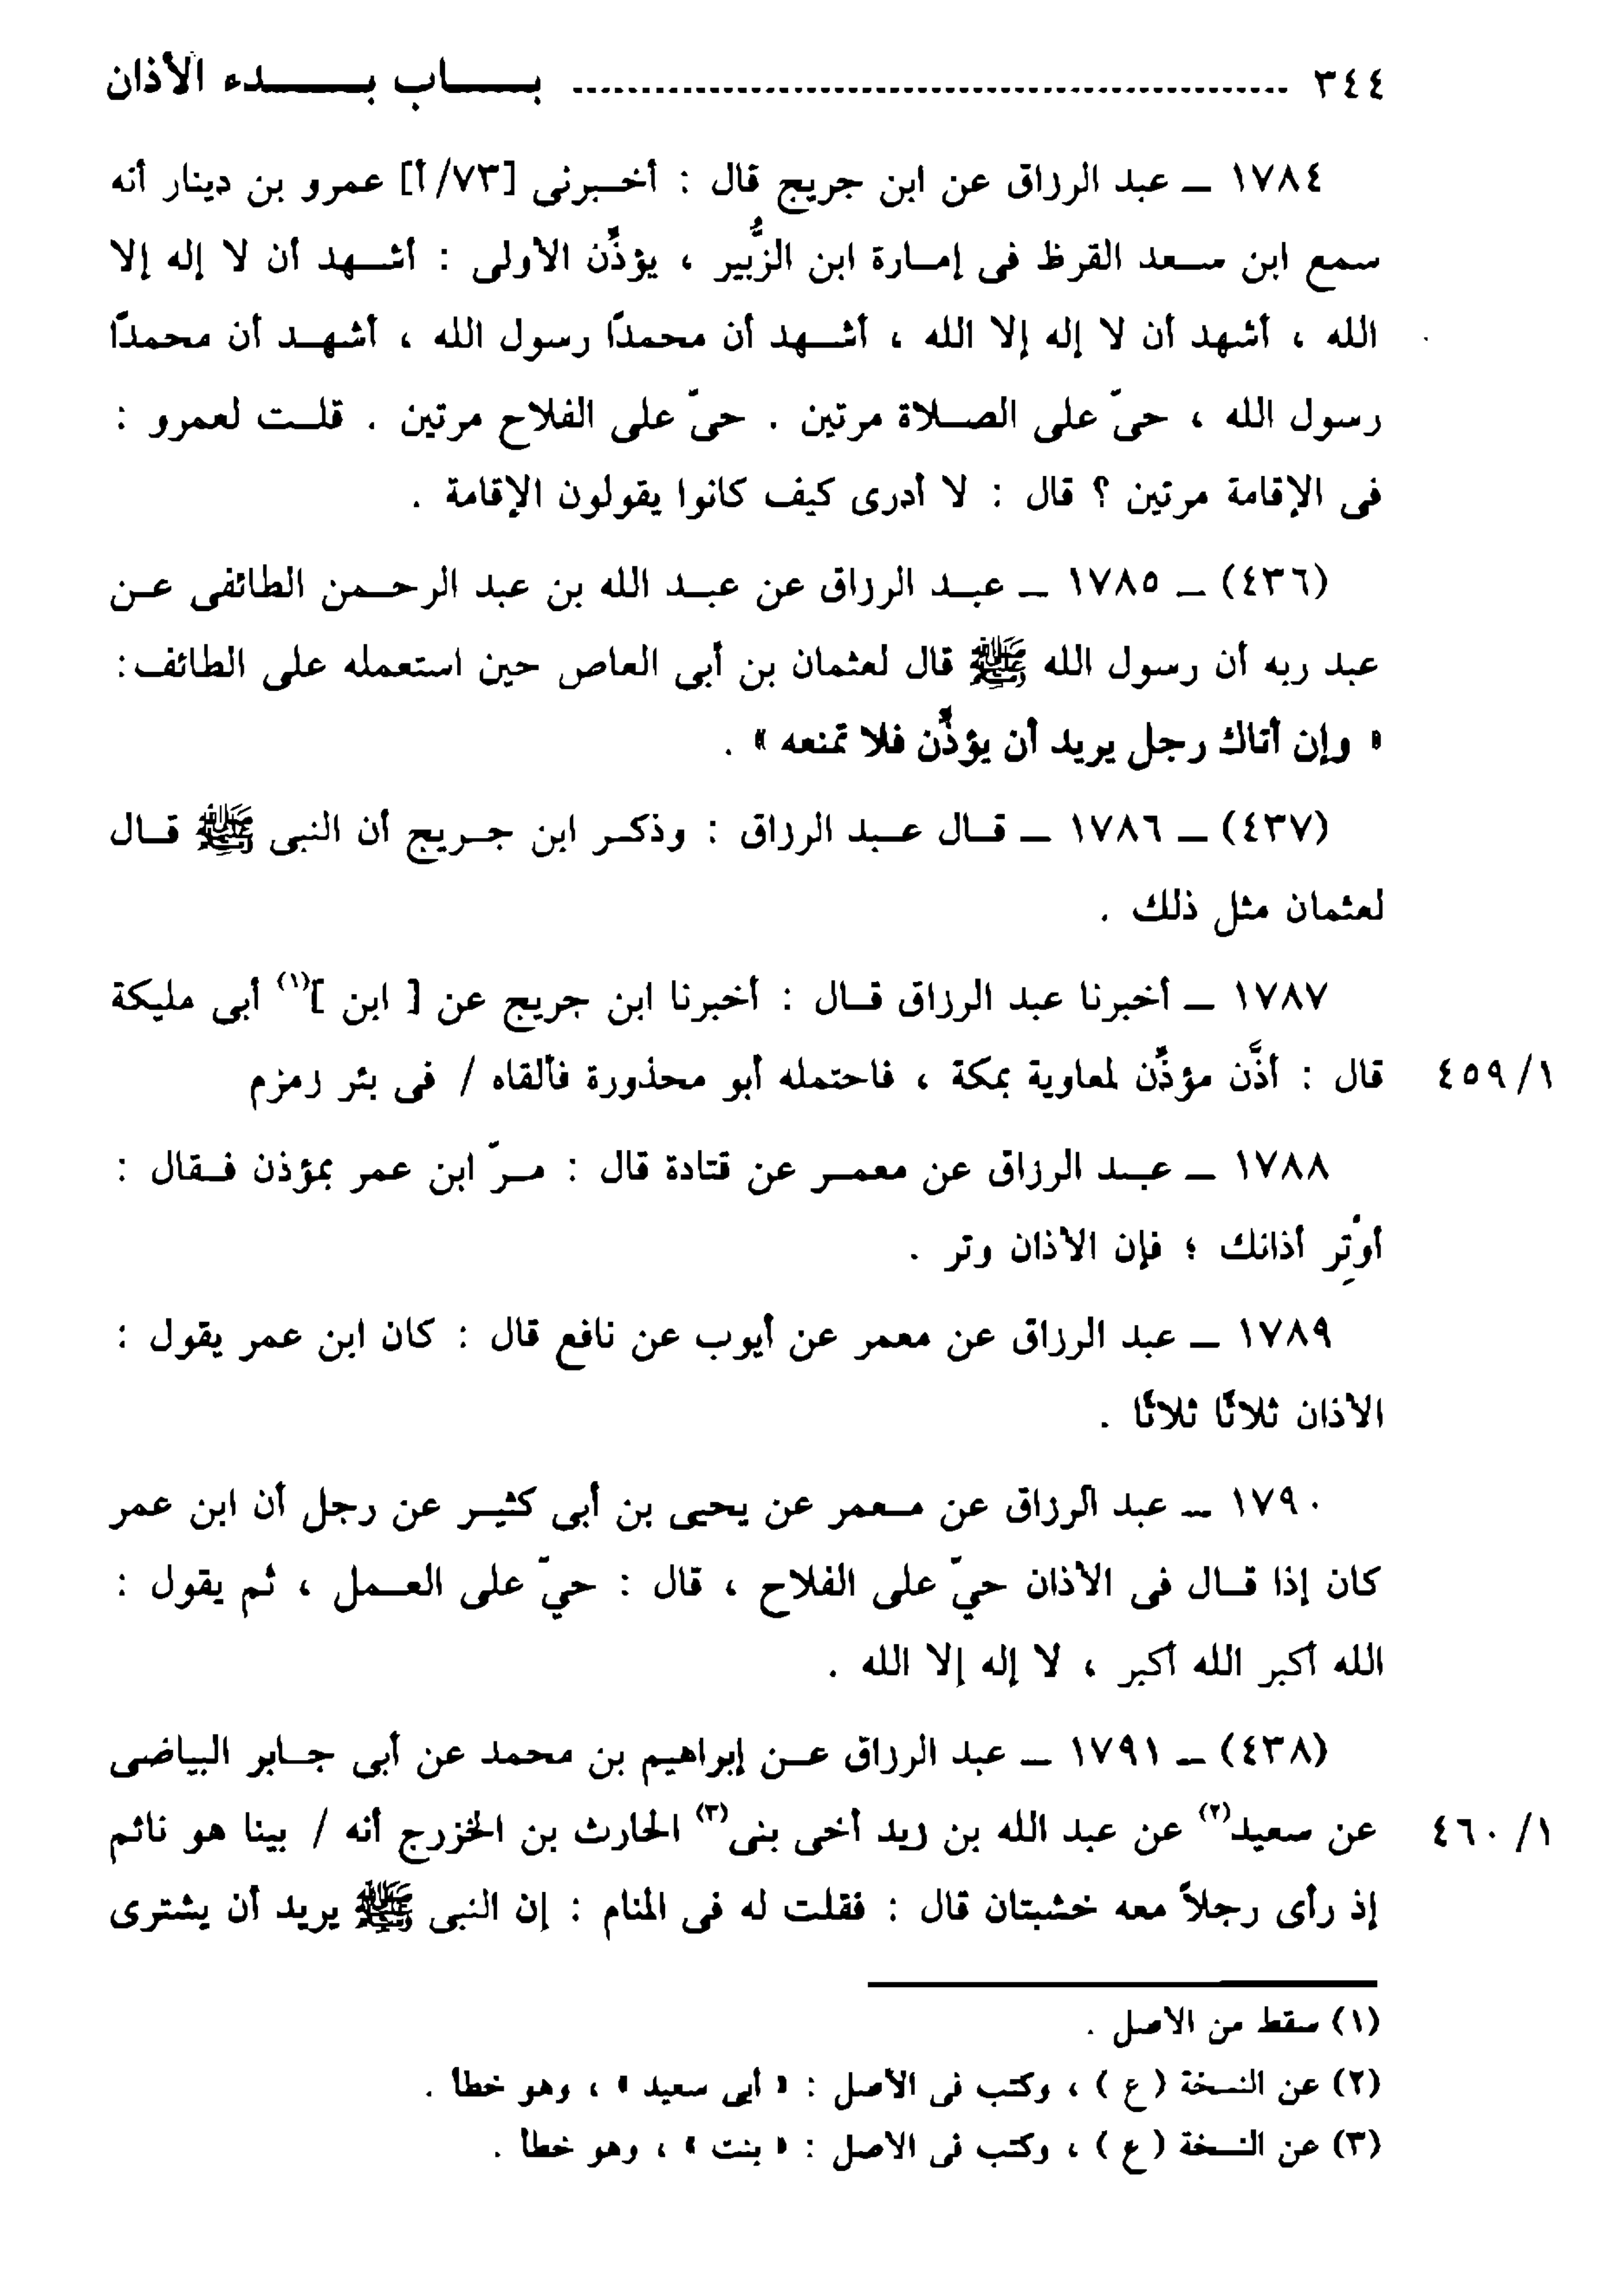 ٣٤٤ ........ باب بدء الأذان
١٧٨٤ ــ عبد الرزاق عن ابن جريج قال : أخبرنى [٧٣/أ] عمرو بن دينار أنه
سمع ابن سعد القرظ فى إمارة ابن الزُّبير ، يؤذِّن الأولى : أشهد أن لا إله إلا
الله ، أشهد أن لا إله إلا الله ، أشهد أن محمدًا رسول الله ، أشهد أن محمدًا
رسول الله ، حىّ على الصلاة مرتين . حىّ على الفلاح مرتين . قلت لعمرو :
فى الإقامة مرتين ؟ قال : لا أدرى كيف كانوا يقولون الإقامة .
(٤٣٦) ــ ١٧٨٥ ــ عبد الرزاق عن عبد الله بن عبد الرحمن الطائفى عن
عبد ربه أن رسول الله ﷺ قال لعثمان بن أبى العاص حين استعمله على الطائف :
« وإن أتاك رجل يريد أن يؤذِّن فلا تمنعه » .
(٤٣٧) ــ ١٧٨٦ ــ قال عبد الرزاق : وذكر ابن جريج أن النبى ﷺ قال
لعثمان مثل ذلك .
١٧٨٧ ــ أخبرنا عبد الرزاق قال : أخبرنا ابن جريج عن [ ابن ](١) أبى مليكة
٤٥٩/١ قال : أذَّن مؤذِّن لمعاوية بمكة ، فاحتمله أبو محذورة فألقاه / فى بئر زمزم
١٧٨٨ ــ عبد الرزاق عن معمر عن قتادة قال : مرّ ابن عمر بمؤذن فقال :
أوْتِر أذانك ؛ فإن الأذان وتر .
١٧٨٩ ــ عبد الرزاق عن معمر عن أيوب عن نافع قال : كان ابن عمر يقول :
الأذان ثلاثًا ثلاثًا .
١٧٩٠ ــ عبد الرزاق عن معمر عن يحيى بن أبى كثير عن رجل أن ابن عمر
كان إذا قال فى الأذان حيّ على الفلاح ، قال : حيّ على العمل ، ثم يقول :
الله أكبر الله أكبر ، لا إله إلا الله .
(٤٣٨) ــ ١٧٩١ ــ عبد الرزاق عن إبراهيم بن محمد عن أبى جابر البياضى
٤٦٠/١ عن سعيد(٢) عن عبد الله بن زيد أخى بنى(٣) الحارث بن الخزرج أنه / بينا هو نائم
إذ رأى رجلاً معه خشبتان قال : فقلت له فى المنام : إن النبى ﷺ يريد أن يشترى
(١) سقط من الأصل .
(٢) عن النسخة ( ع ) ، وكتب فى الأصل : « أبى سعيد » ، وهو خطأ .
(٣) عن النسخة ( ع ) ، وكتب فى الأصل : « بنت » ، وهو خطأ .